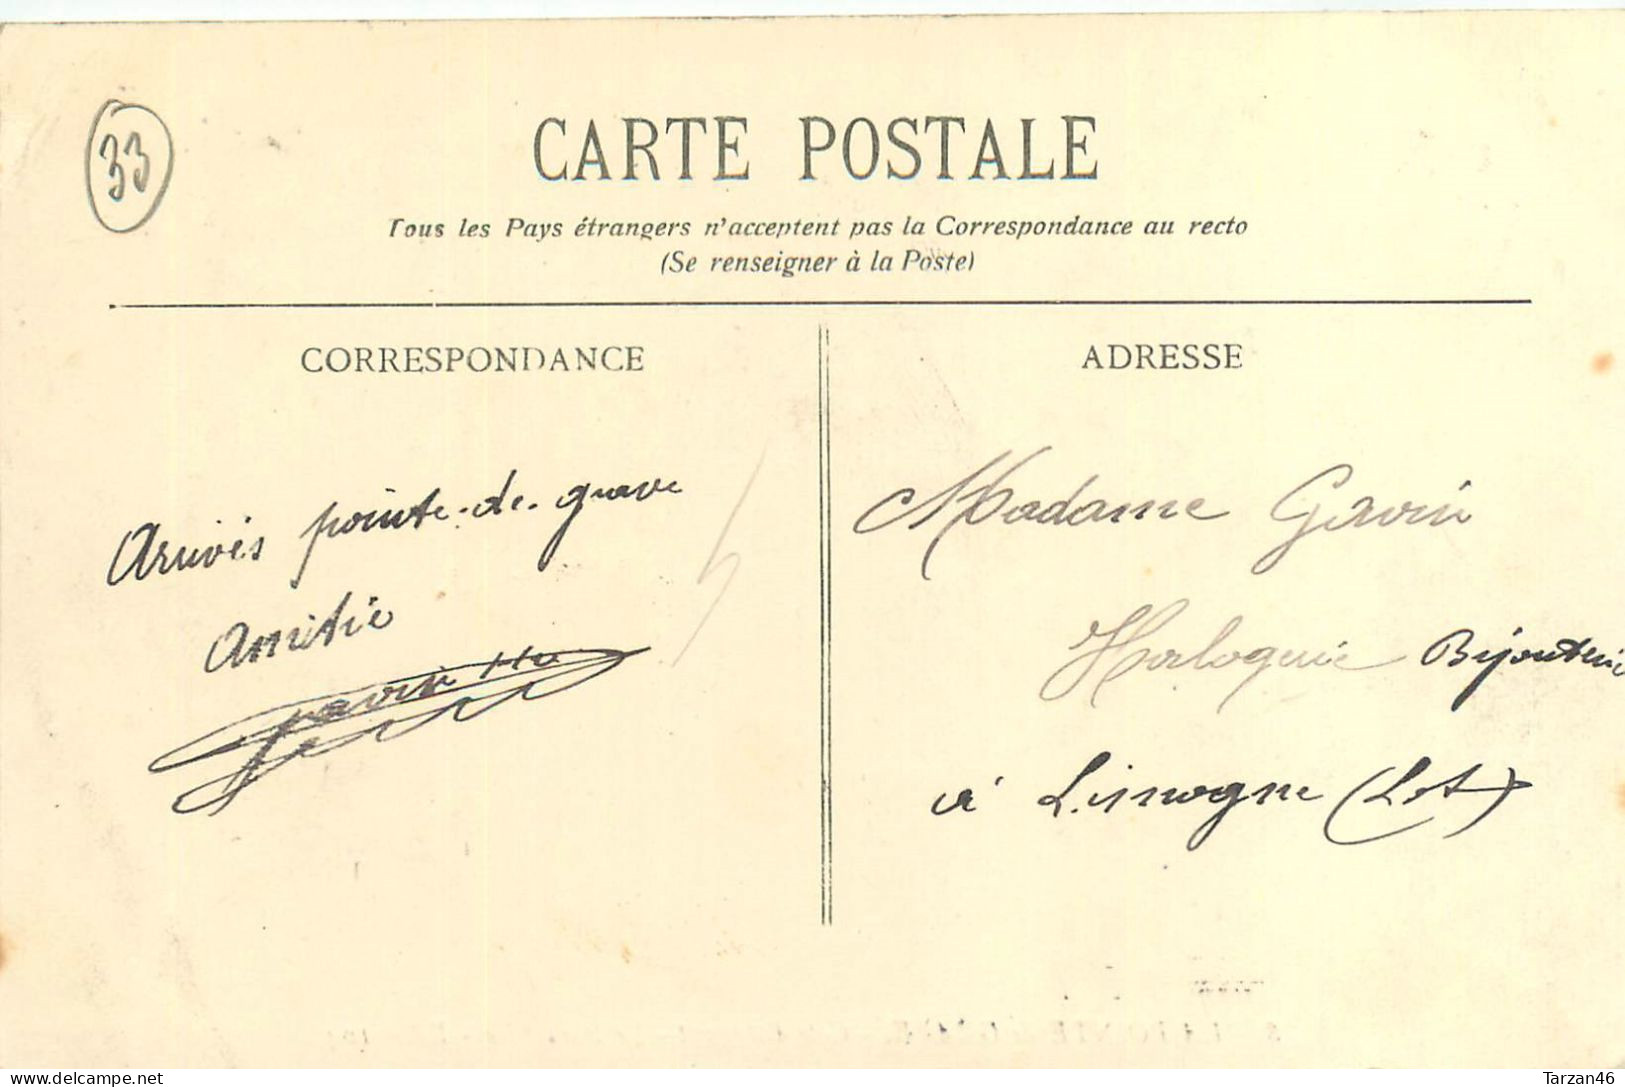 33
CARTE POSTALE
Tous les Pays étrangers n'acceptent pas la Correspondance au recto
(Se renseigner à la Poste)
CORRESPONDANCE
ADRESSE
Arrivés pointe-de-grave
Amitié
Gavin
Madame Gavin
Horlogerie Bijouterie
à Limogne (Lot)
Tarzan46